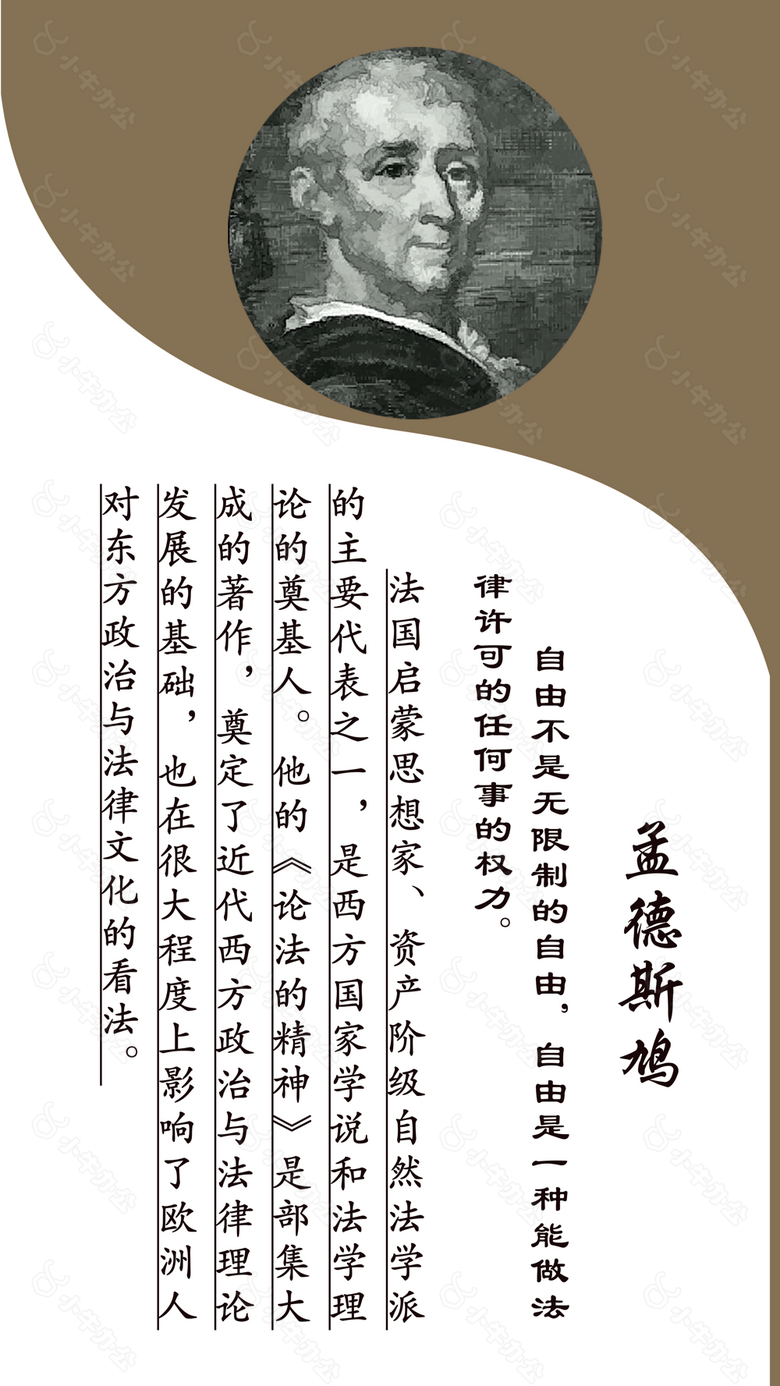 孟德斯鸠
自由不是无限制的自由，自由是一种能做法
律许可的任何事的权力。
法国启蒙思想家、资产阶级自然法学派
的主要代表之一，是西方国家学说和法学理
论的奠基人。他的《论法的精神》是部集大
成的著作，奠定了近代西方政治与法律理论
发展的基础，也在很大程度上影响了欧洲人
对东方政治与法律文化的看法。
小牛办公